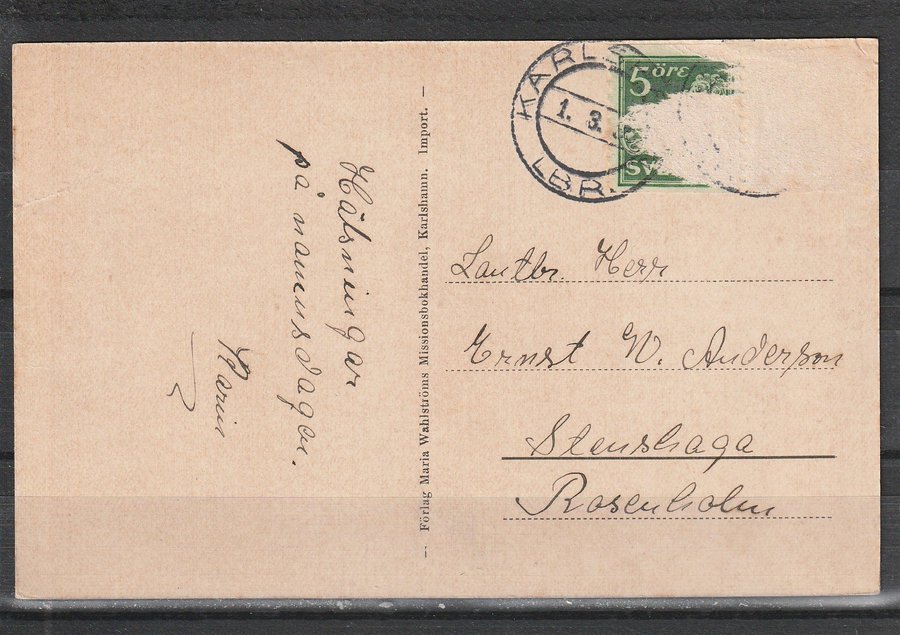 Hälsningar
på namnsdagen.
Karin
Förlag Maria Wahlströms Missionsbokhandel, Karlshamn. Import.
KARLS
1. 3.
LBR.
5 öre
SV
Lantbr. Herr
Ernst W. Anderson
Stenshaga
Rosenholm